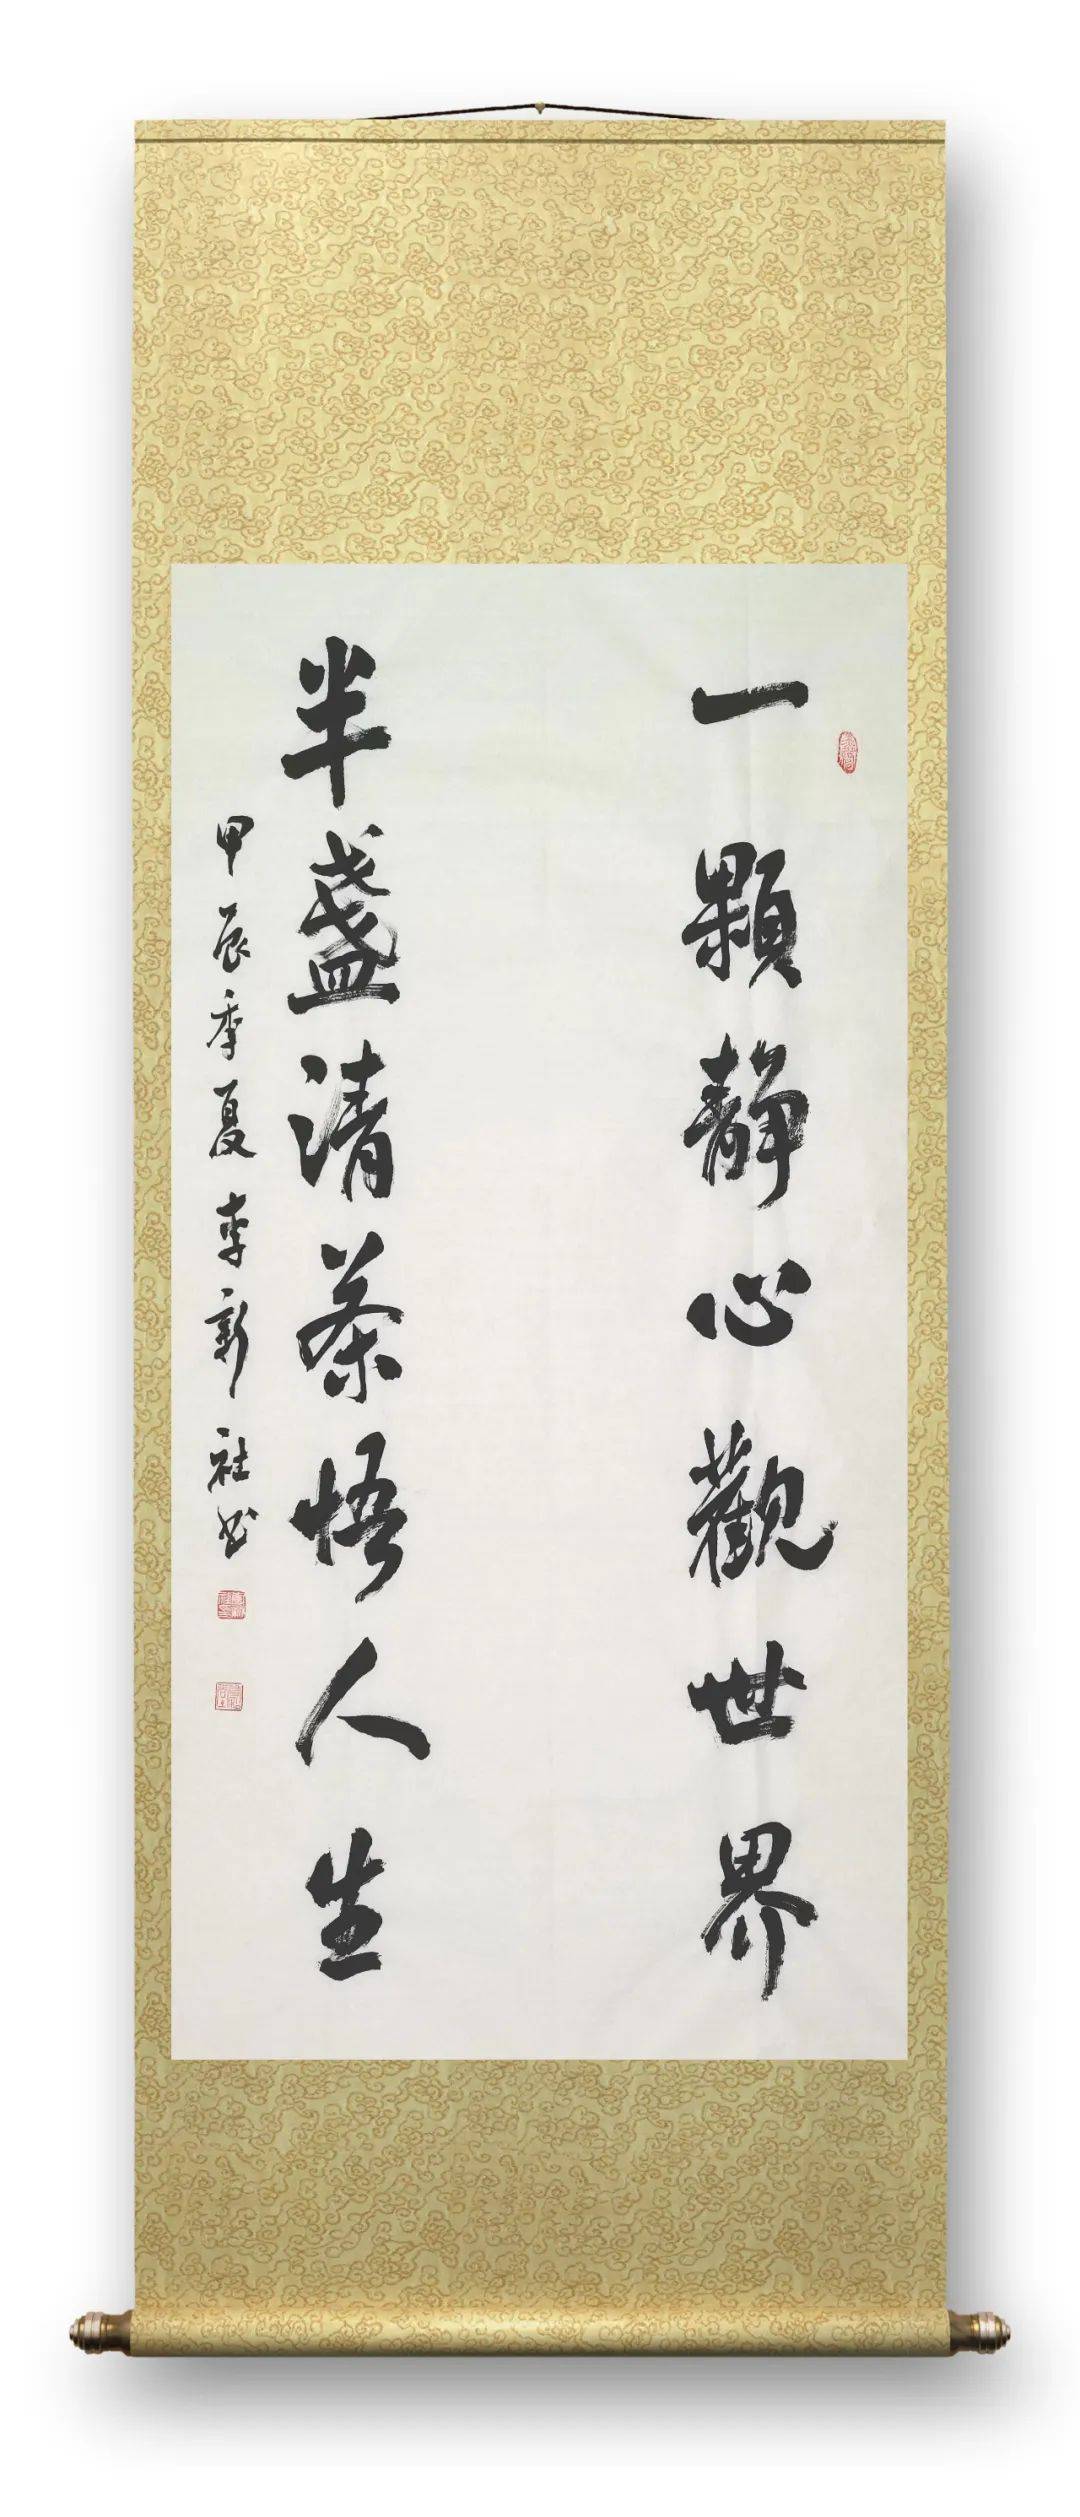 一顆靜心觀世界
半盞清茶悟人生
甲辰季夏李新社书